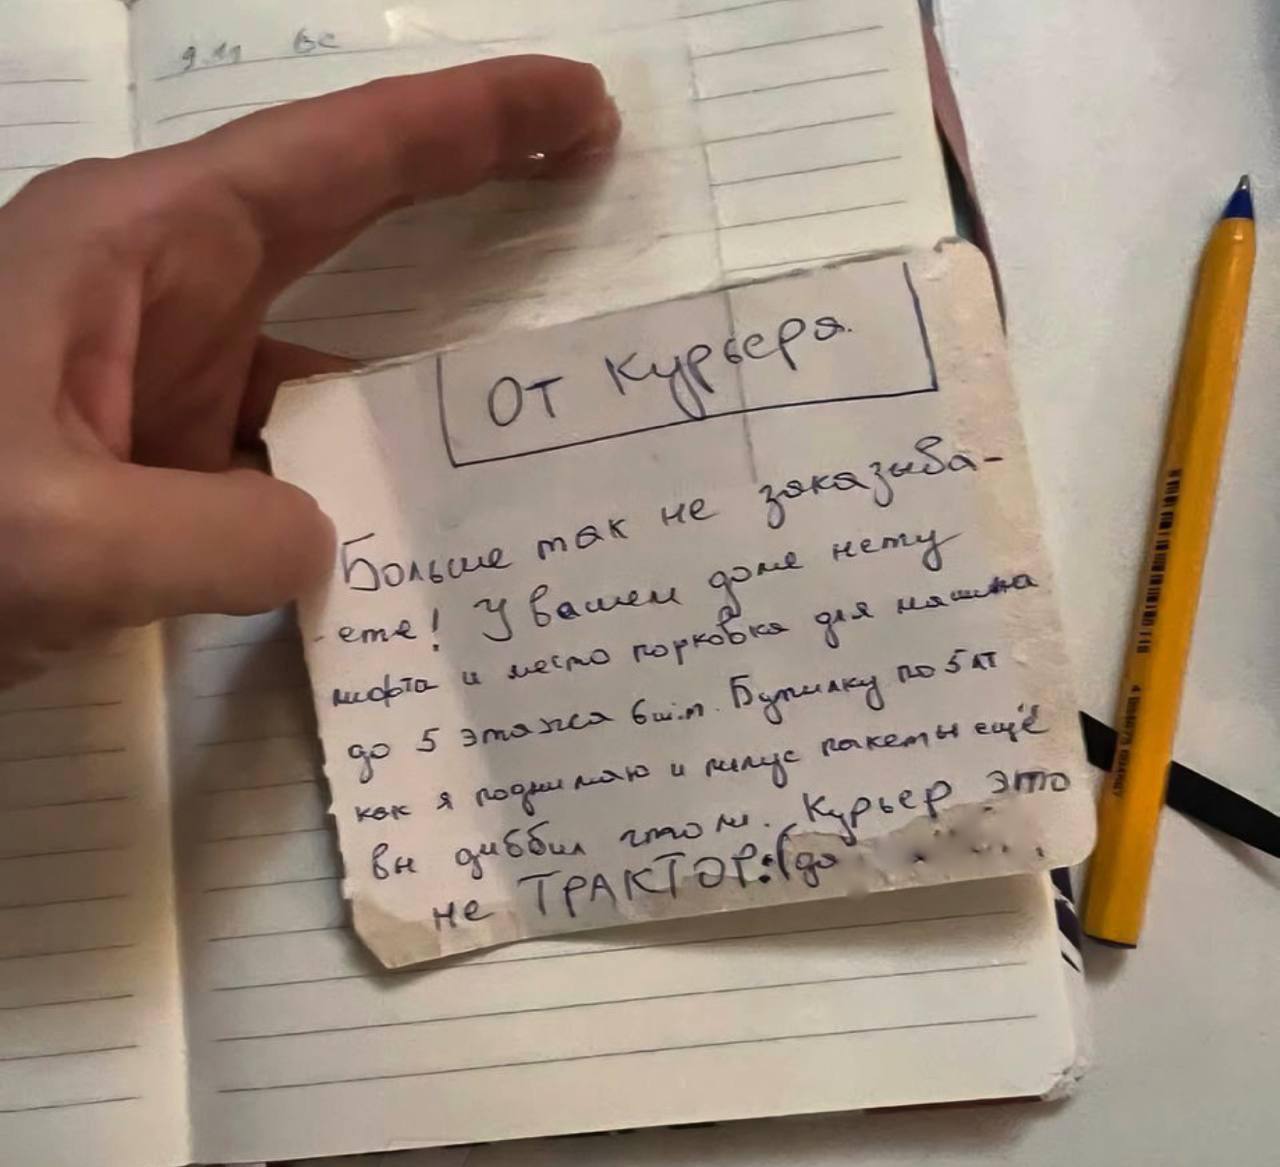 9.11 Вс
От Курьера.
Больше так не заказыва-
ете! У вашем доме нету
лифта и место порковка для машина
до 5 этажа 6 шт. Бутилку по 5 лт
как я поднимаю и плюс пакеты ещё
вы диббил что ли. Курьер это
не ТРАКТОР:( до